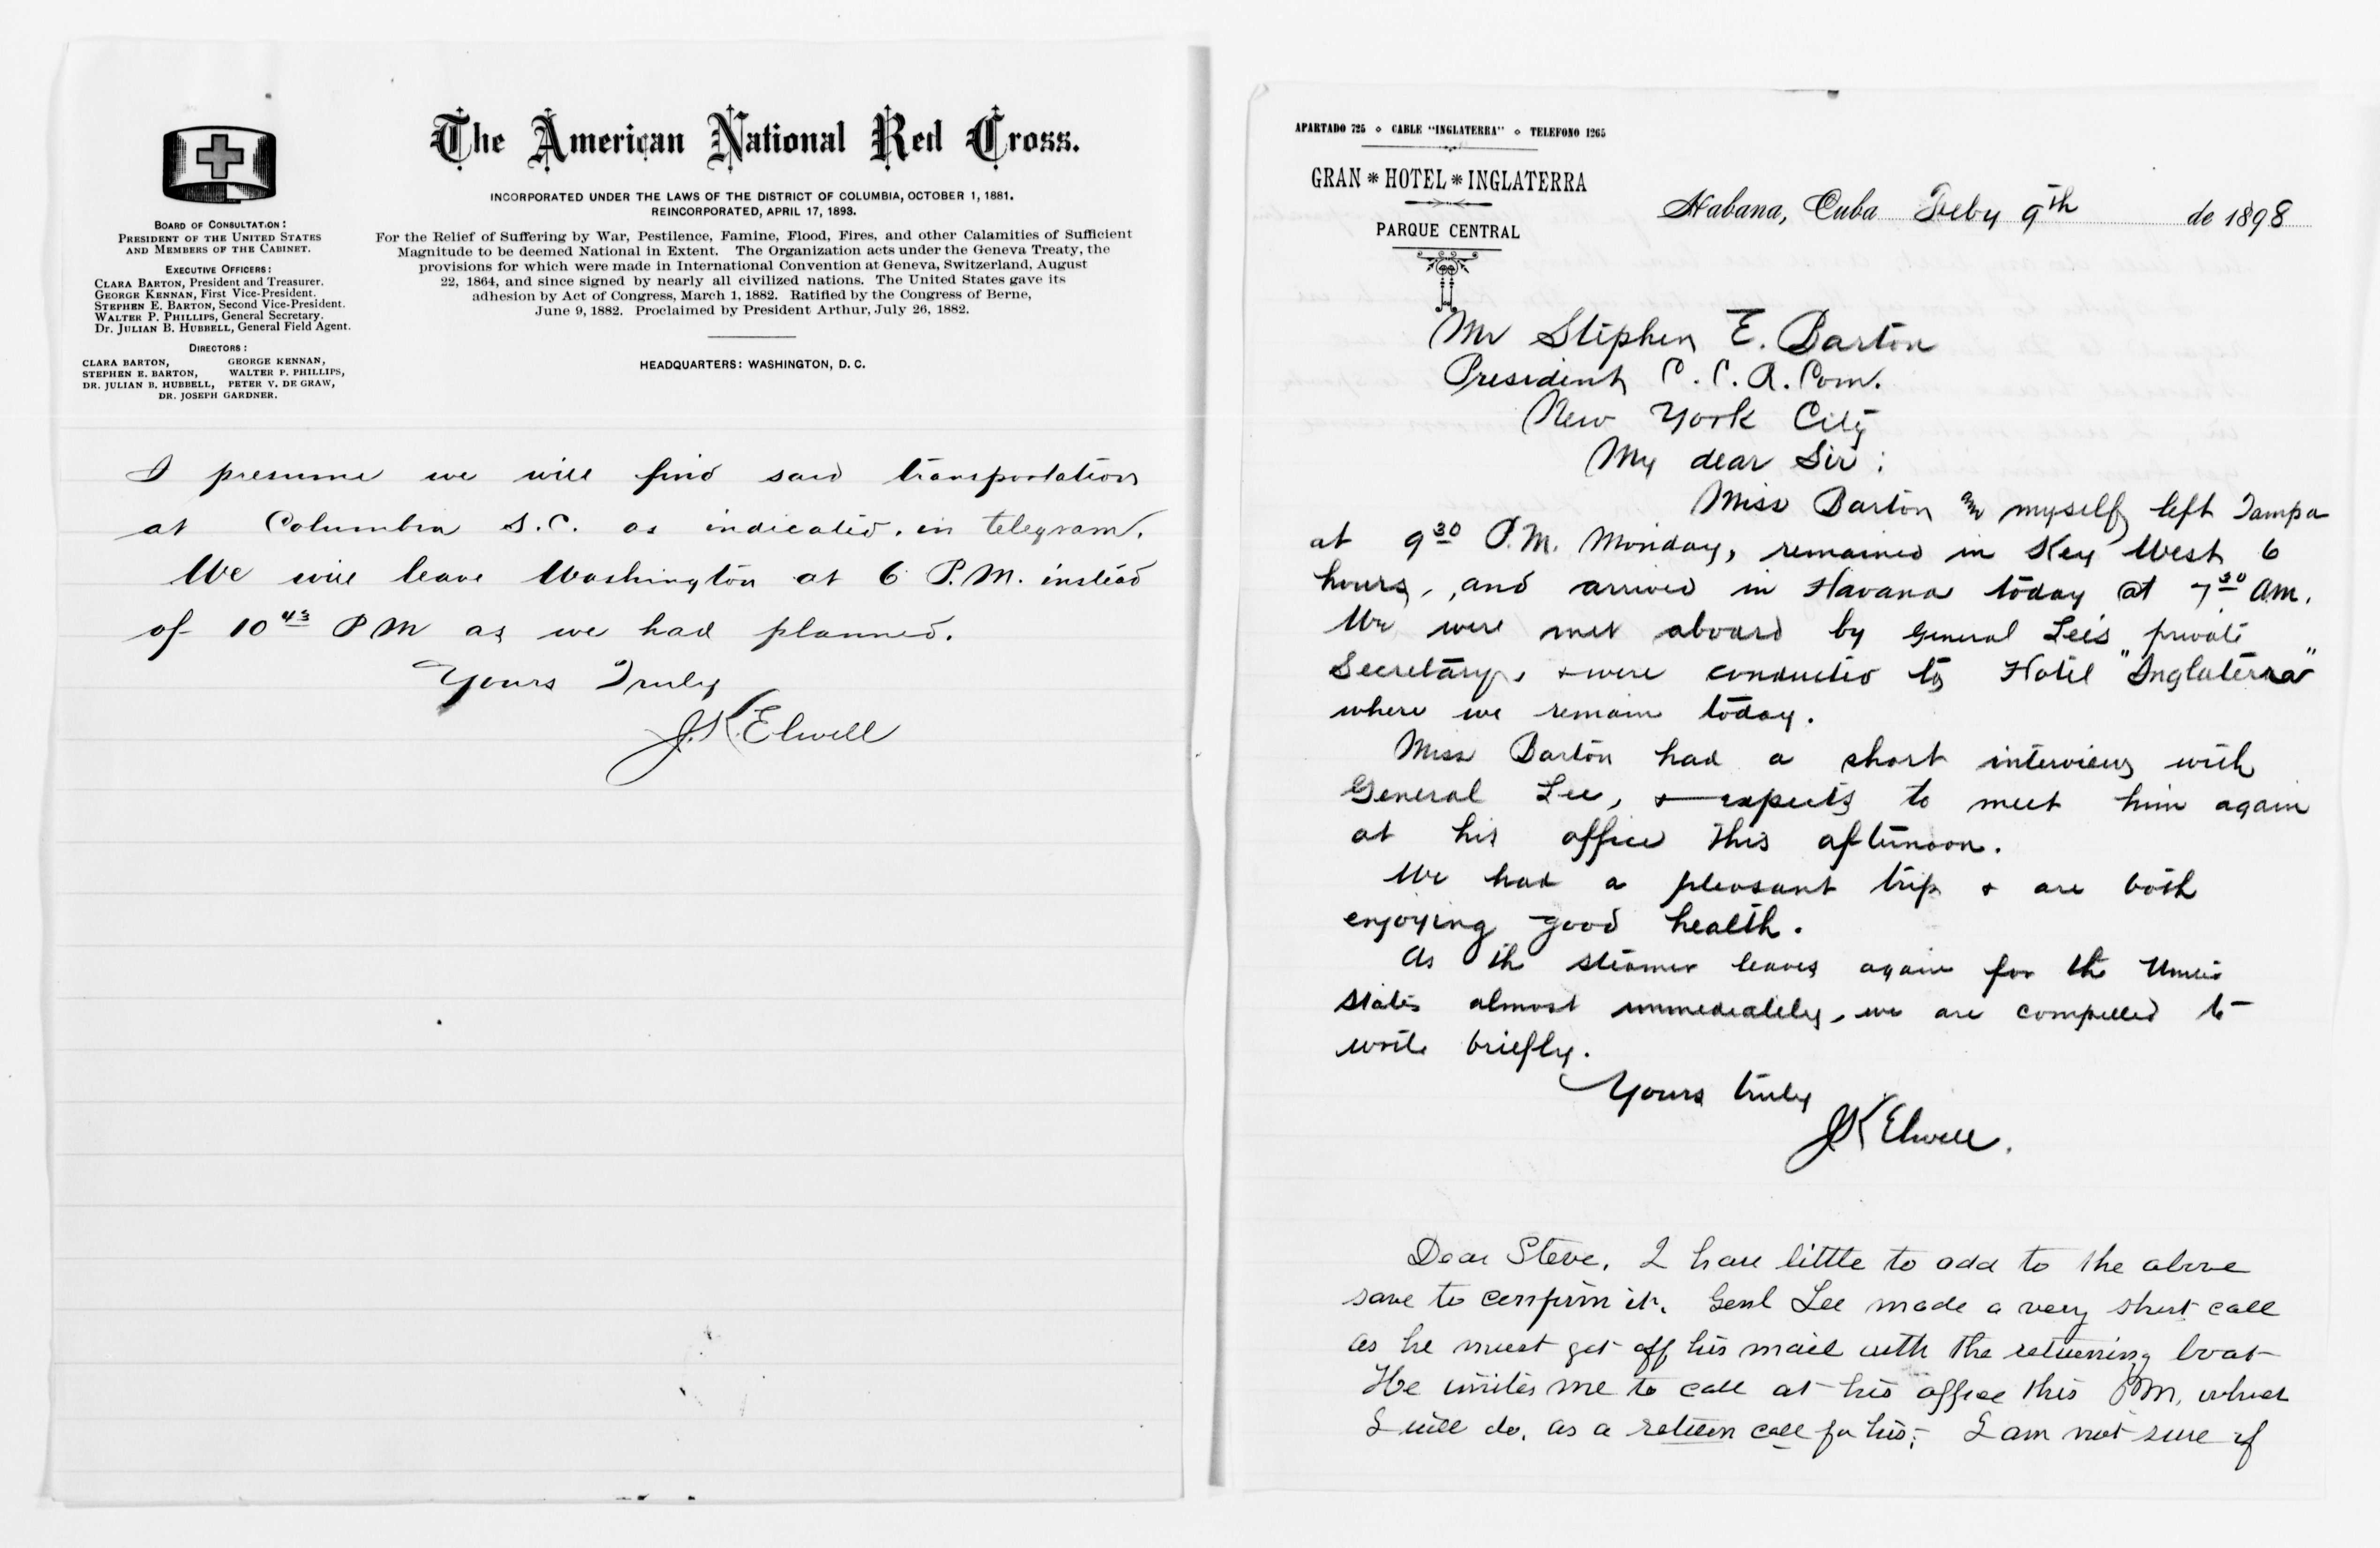 The American National Red Cross.
INCORPORATED UNDER THE LAWS OF THE DISTRICT OF COLUMBIA, OCTOBER 1, 1881.
REINCORPORATED, APRIL 17, 1893.
For the Relief of Suffering by War, Pestilence, Famine, Flood, Fires, and other Calamities of Sufficient
Magnitude to be deemed National in Extent. The Organization acts under the Geneva Treaty, the
provisions for which were made in International Convention at Geneva, Switzerland, August
22, 1864, and since signed by nearly all civilized nations. The United States gave its
adhesion by Act of Congress, March 1, 1882. Ratified by the Congress of Berne,
June 9, 1882. Proclaimed by President Arthur, July 26, 1882.
HEADQUARTERS: WASHINGTON, D. C.
BOARD OF CONSULTATION:
PRESIDENT OF THE UNITED STATES
AND MEMBERS OF THE CABINET.
EXECUTIVE OFFICERS:
CLARA BARTON, President and Treasurer.
GEORGE KENNAN, First Vice-President.
STEPHEN E. BARTON, Second Vice-President.
WALTER P. PHILLIPS, General Secretary.
Dr. JULIAN B. HUBBELL, General Field Agent.
DIRECTORS:
CLARA BARTON, GEORGE KENNAN,
STEPHEN E. BARTON, WALTER P. PHILLIPS,
DR. JULIAN B. HUBBELL, PETER V. DE GRAW,
DR. JOSEPH GARDNER.
I presume we will find said transportation
at Columbia S.C. as indicated in telegram.
We will leave Washington at 6 P.M. instead
of 10 43 P M as we had planned.
Yours Truly
J.K. Elwell
APARTADO 725 ⋄ CABLE "INGLATERRA" ⋄ TELEFONO 1265
GRAN * HOTEL * INGLATERRA
PARQUE CENTRAL
Habana, Cuba Feby 9th de 1898
Mr Stephen E. Barton
President C. C. R. Com.
New York City
My dear Sir:
Miss Barton & myself left Tampa
at 9 30 P.M. Monday, remained in Key West 6
hours, and arrived in Havana today at 7 30 A.M.
We were met aboard by General Lee's private
Secretary, & were conducted to Hotel "Inglaterra"
where we remain today.
Miss Barton had a short interview with
General Lee, & expects to meet him again
at his office this afternoon.
We had a pleasant trip & are both
enjoying good health.
As the steamer leaves again for the United
States almost immediately, we are compelled to
write briefly.
Yours truly
J K Elwell.
Dear Steve, I have little to add to the above
save to confirm it. Genl Lee made a very short call
as he must get off his mail with the returning boat
He invites me to call at his office this P.M. which
I will do, as a return call for his; I am not sure if